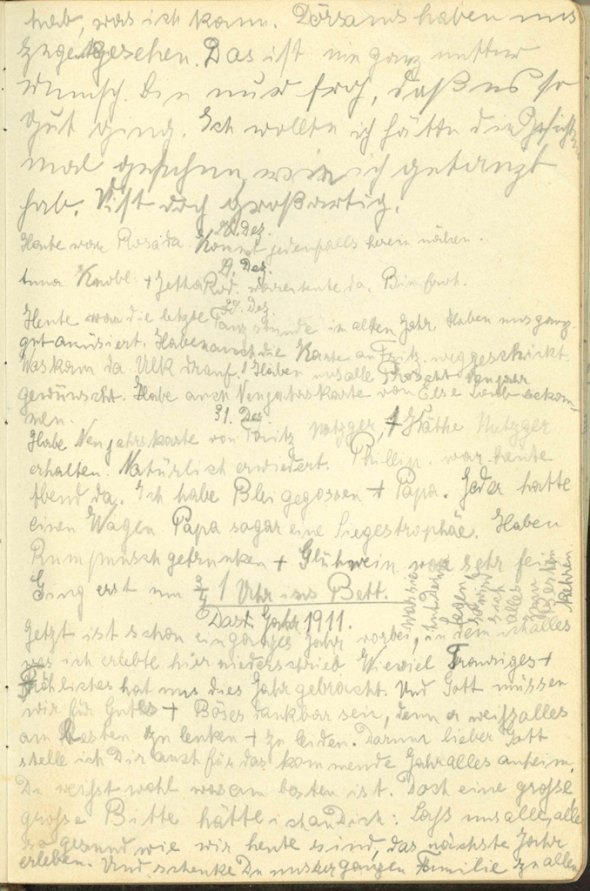 hab, was ich kann. Dörsams haben uns
zugesehen. Das ist mein ganz netter
Wunsch. Bin nur froh, daß es so
gut ging. Ich wollte ich hätte die Gesichter
mal gesehen, wie ich getanzt
hab. S'ist doch großartig.
28. Dez.
Heute war Rosa da. Konnt jedenfalls herein nähen.
29. Dez.
Anna Knobl + Jetta Rod. waren heute da.
30. Dez.
Heute war die letzte Tanzstunde im alten Jahr. Haben uns ganz
gut amüsiert. Haben auch die Karte an Fritz weggeschickt.
Was kam da Ulk drauf! Haben uns alle Prosit Neujahr
gewünscht. Habe auch Neujahrskarte von Else Laub bekom-
men.
31. Dez.
Habe Neujahrskarte von Moritz Metzger, + Käthe Metzger
erhalten. Natürlich erwiedert. Phillip. war heute
Abend da. Ich habe Blei gegossen + Papa. Jeder hatte
einen Wagen Papa sogar eine Siegestrophäe. Haben
Rumpunsch getrunken + Glühwein war sehr fein
Ging erst um 1 Uhr ins Bett.
Das Jahr 1911.
Jetzt ist schon ein ganzes Jahr vorbei, in dem ich alles
was ich erlebte hier niederschrieb. Wieviel Trauriges +
Fröhliches hat uns dies Jahr gebracht. Und Gott müssen
wir für Gutes + Böses dankbar sein, denn er weiß alles
am besten zu lenken + zu leiden. Darum lieber Gott
stelle ich Dir auch für das kommende Jahr alles anheim.
Du weißt wohl was am besten ist. Doch eine große
große Bitte hätte ich an Dich: Laß uns alle, alle
so gesund wie wir heute sind, das nächste Jahr
erleben. Und schenke Du unsrer ganzen Familie zu allen
wird
sich
alles
zum
Besten
kehren